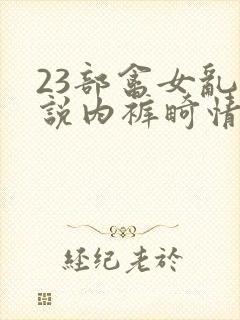 23部畲女乱
說内裤畸情
经纪老於